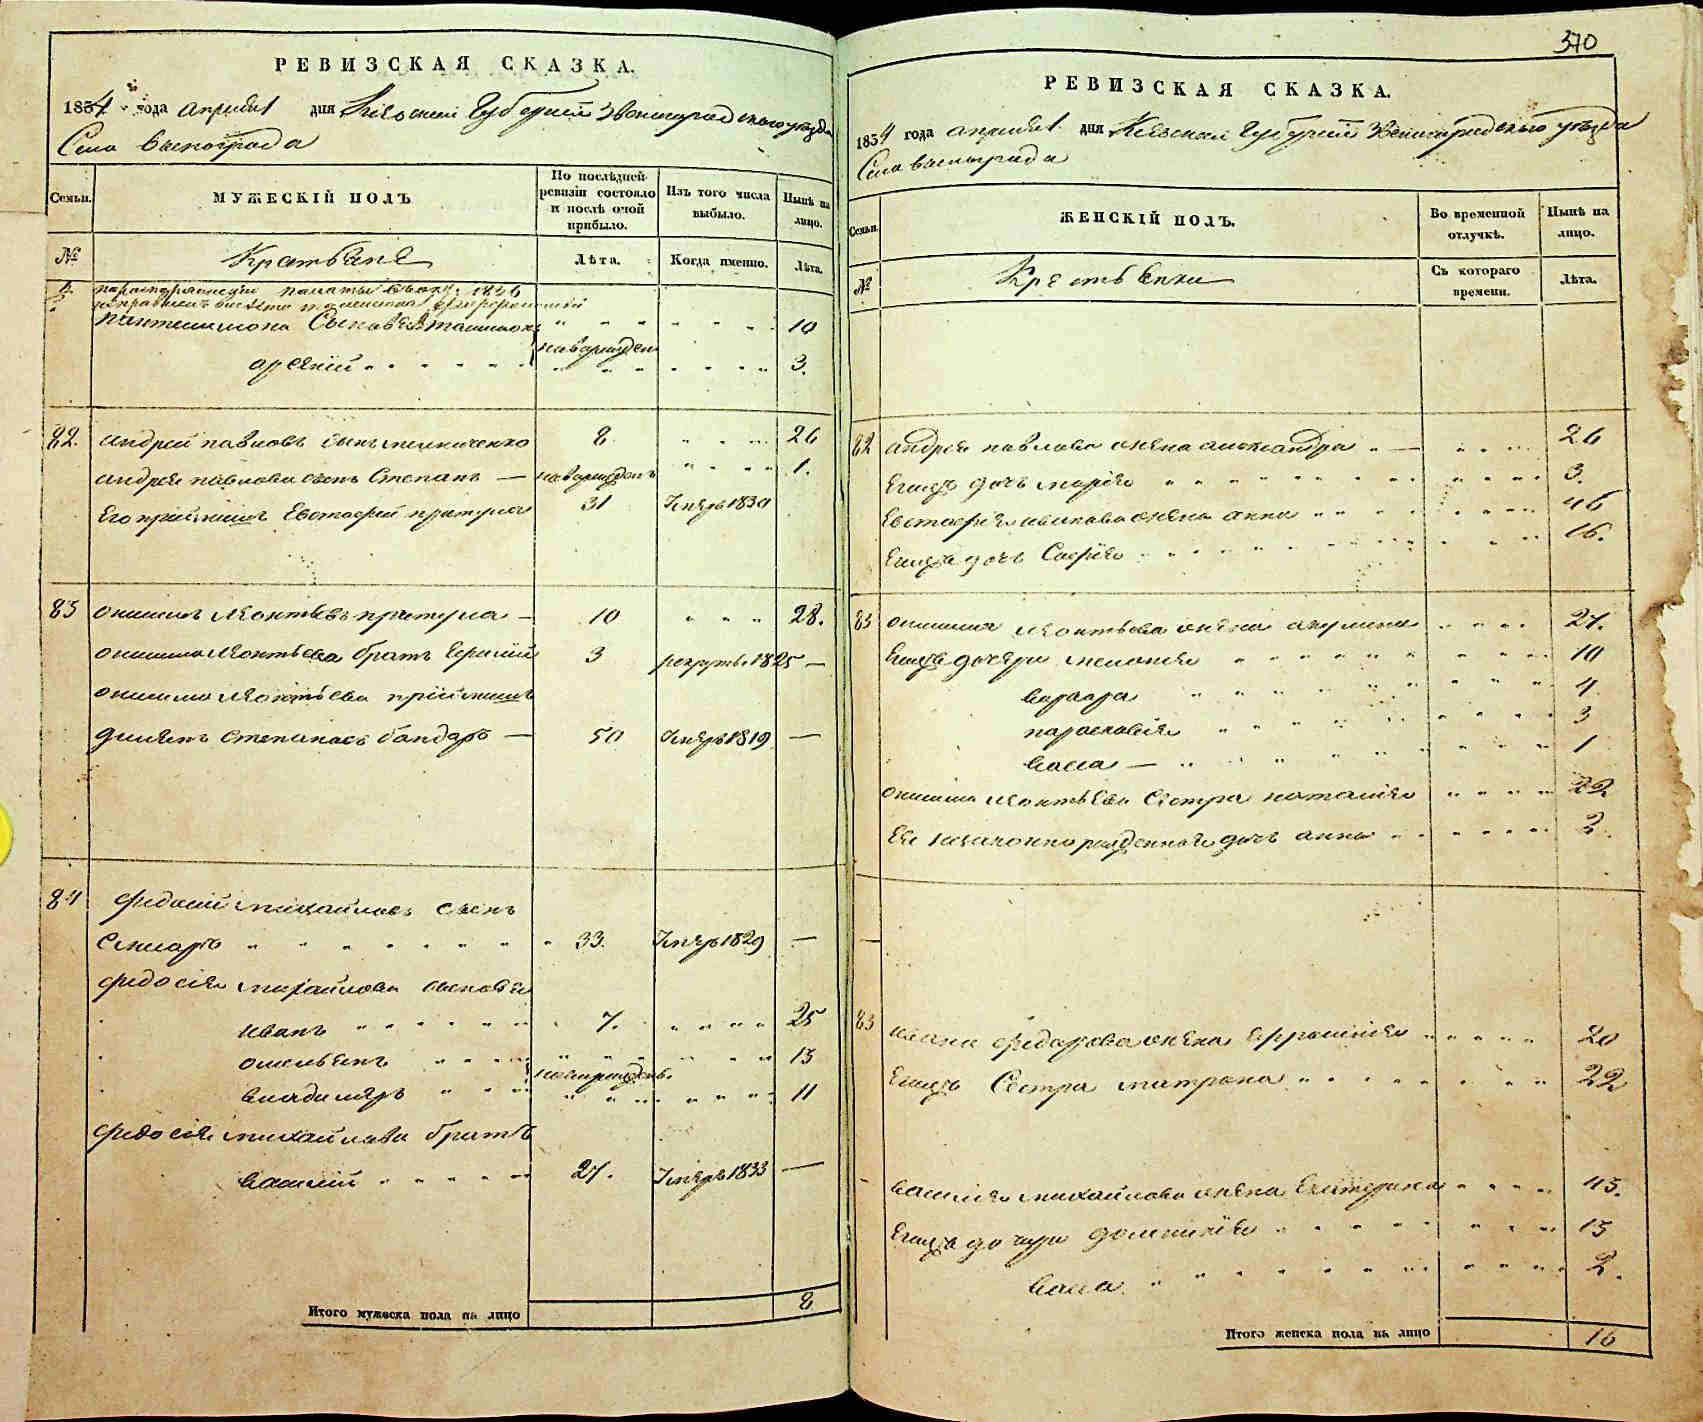 370
РЕВИЗСКАЯ СКАЗКА.
1834 года апреля дня Киевской Губернии Звенигородского уезда
Села Винограда
Семьи. МУЖЕСКІЙ ПОЛЪ По послѣдней ревизіи состояло и послѣ оной прибыло. Изъ того числа выбыло. Нынѣ на лицо.
№ Крестьяне Лѣта. Когда именно. Лѣта.
Пантелимона Сыновья 10
новорожден
арсеній 3.
82. андрей павловъ сынъ мельниченко 8 26
андрея павлова сынъ Степанъ — новорожденъ 1.
Его приймишъ Евстафей притула 31 Умеръ 1830
83 онисимъ Леонтьевъ притула — 10 28.
онисима Леонтьева братъ Герасим 3 рекрутъ 1825 —
онисима Леонтьева приймишъ
Степановъ бондарь — 50 Умеръ 1819 —
84 федосій михайловъ сынъ
Слюсарь 33. Умеръ 1829 —
федосія михайлова сыновья
иванъ 7. 25
омельянъ 13
новорожденъ
владимеръ 11
федосія михайлова братъ
василій 27. Умеръ 1833 —
Итого мужеска пола на лицо 8
РЕВИЗСКАЯ СКАЗКА.
1834 года апреля дня Киевской Губерніи Звенигородского уезда
Села Винограда
Семьи. ЖЕНСКІЙ ПОЛЪ. Во временной отлучкѣ. Нынѣ на лицо.
№ Крестьянки Съ котораго времени. Лѣта.
82 андрея павлова жена александра — 26
Егожъ дочь марія 3.
Евстафія иванова жена анна 46
Егожъ дочь Софія 16.
83 онисима Леонтьева жена акулина 27.
Егожъ дочери меланія 10
варвара 4
парасковія 3
васса — 1
онисима Леонтьева сестра наталія 22
Ея незаконно рожденная дочь анна 2.
83 ивана федорова жена Ефросинія 20
Егожъ Сестра матрона 22
василія михайлова жена Екатерина 45.
Егожъ дочери домникія 15
васса 2.
Итого женска пола на лицо 16